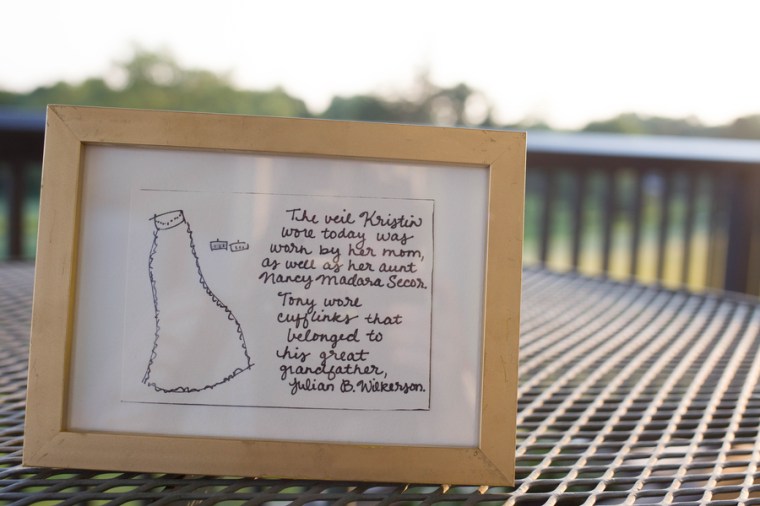 The veil Kristin
wore today was
worn by her mom,
as well as her aunt
Nancy Madara Secor.
Tony wore
cufflinks that
belonged to
his great
grandfather,
Julian B. Wilkerson.